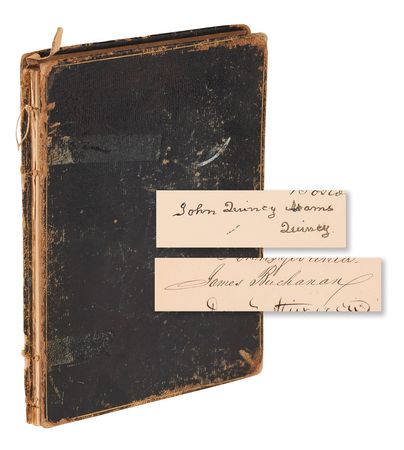 John Quincy Adams
Quincy
James Buchanan